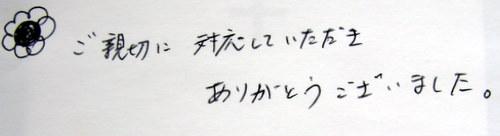 ご親切に 対応していただき
ありがとうございました。